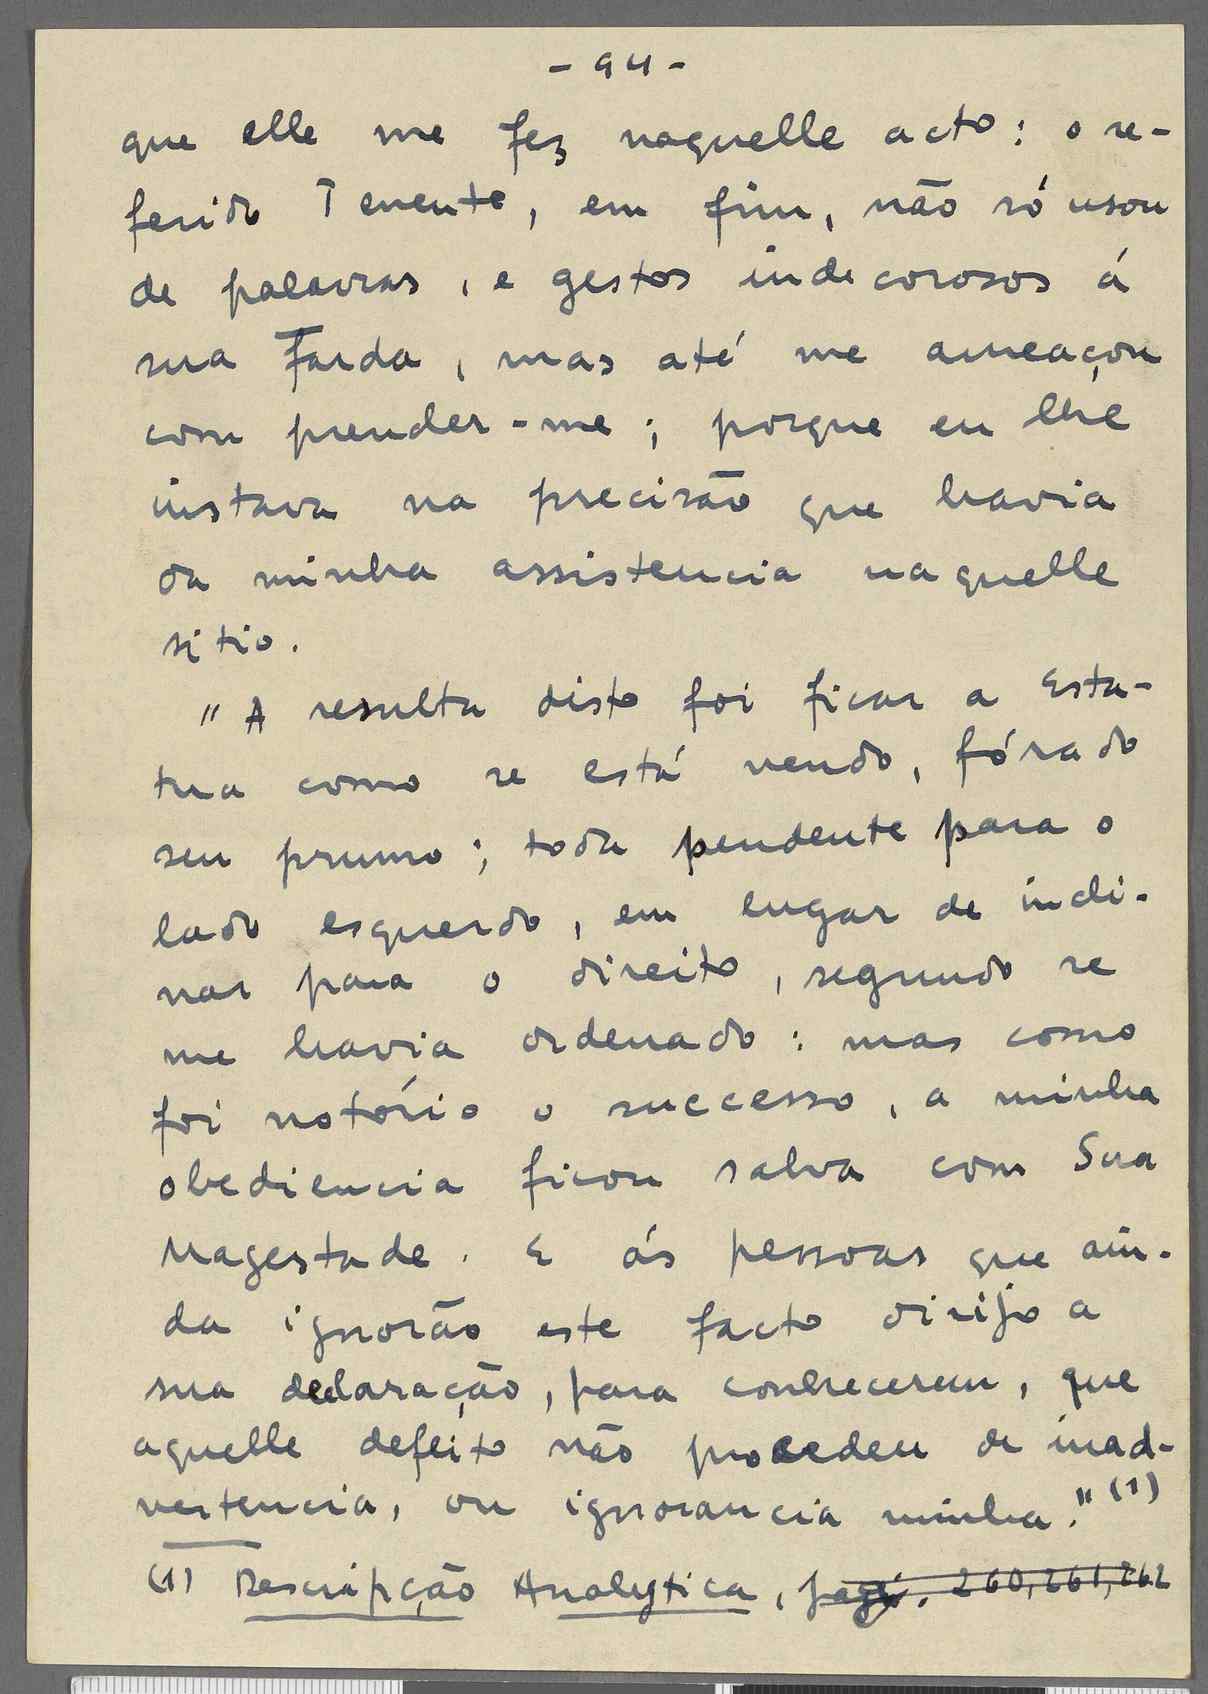 - 94 -
que elle me fez naquelle acto: o re-
ferido Tenente, em fim, não só usou
de palavras, e gestos indecorosos á
sua Farda, mas até me ameaçou
com prender-me; porque eu lhe
instava na precisão que havia
da minha assistencia naquelle
sitio.
"A resulta disto foi ficar a Esta-
tua como se está vendo, fóra do
seu prumo; toda pendente para o
lado esquerdo, em lugar de incli-
nar para o direito, segundo se
me havia ordenado: mas como
foi notório o successo, a minha
obediencia ficou salva com Sua
Magestade. E ás pessoas que ain-
da ignorão este facto dirijo a
sua declaração, para conhecerem, que
aquelle defeito não procedeu de inad-
vertencia, ou ignorancia minha." (1)
(1) Descripção Analytica, pags. 260, 261, 262